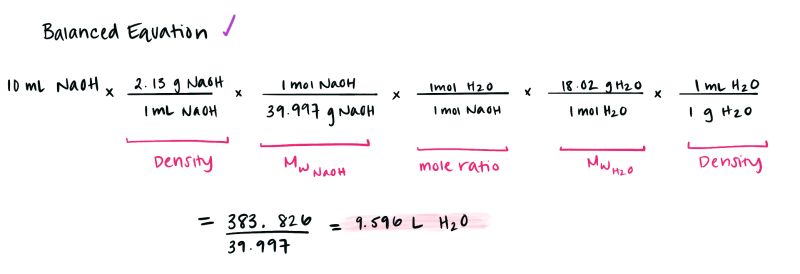 Balanced Equation ✓
10 mL NaOH × 2.13 g NaOH / 1 mL NaOH × 1 mol NaOH / 39.997 g NaOH × 1 mol H2O / 1 mol NaOH × 18.02 g H2O / 1 mol H2O × 1 mL H2O / 1 g H2O
Density MW NaOH mole ratio MW H2O Density
= 383.826 / 39.997 = 9.596 L H2O